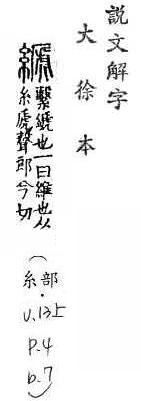 說文解字
大徐本
繫也一曰維也从
糸虒聲郎兮切
（糸部・
U.13上
P.4
b.7）